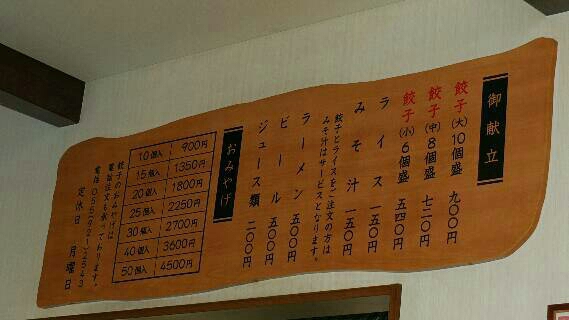 御献立
餃子(大)10個盛 九〇〇円
餃子(中)8個盛 七二〇円
餃子(小)6個盛 五四〇円
ライス 一五〇円
みそ汁 一五〇円
餃子とライスをご注文の方は
みそ汁はサービスとなります。
ラーメン 五〇〇円
ビール 五〇〇円
ジュース類 二〇〇円
おみやげ
10個入 900円
15個入 1350円
20個入 1800円
25個入 2250円
30個入 2700円
40個入 3600円
50個入 4500円
餃子のおみやげは
電話注文も承っております。
定休日 月曜日